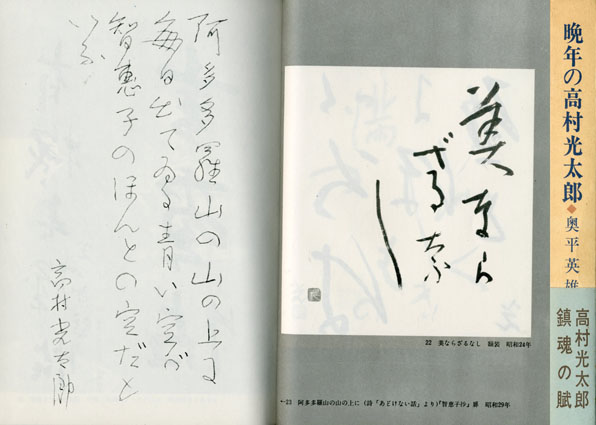 晩年の高村光太郎◆奥平英雄
高村光太郎
鎮魂の賦
美なら
ざるな
し
22 美ならざるなし 額装 昭和24年
←23 阿多多羅山の山の上に (詩「あどけない話」より)「智恵子抄」 昭和29年
阿多多羅山の山の上に
毎日出てゐる青い空が
智恵子のほんとの空だと
いふ
高村光太郎